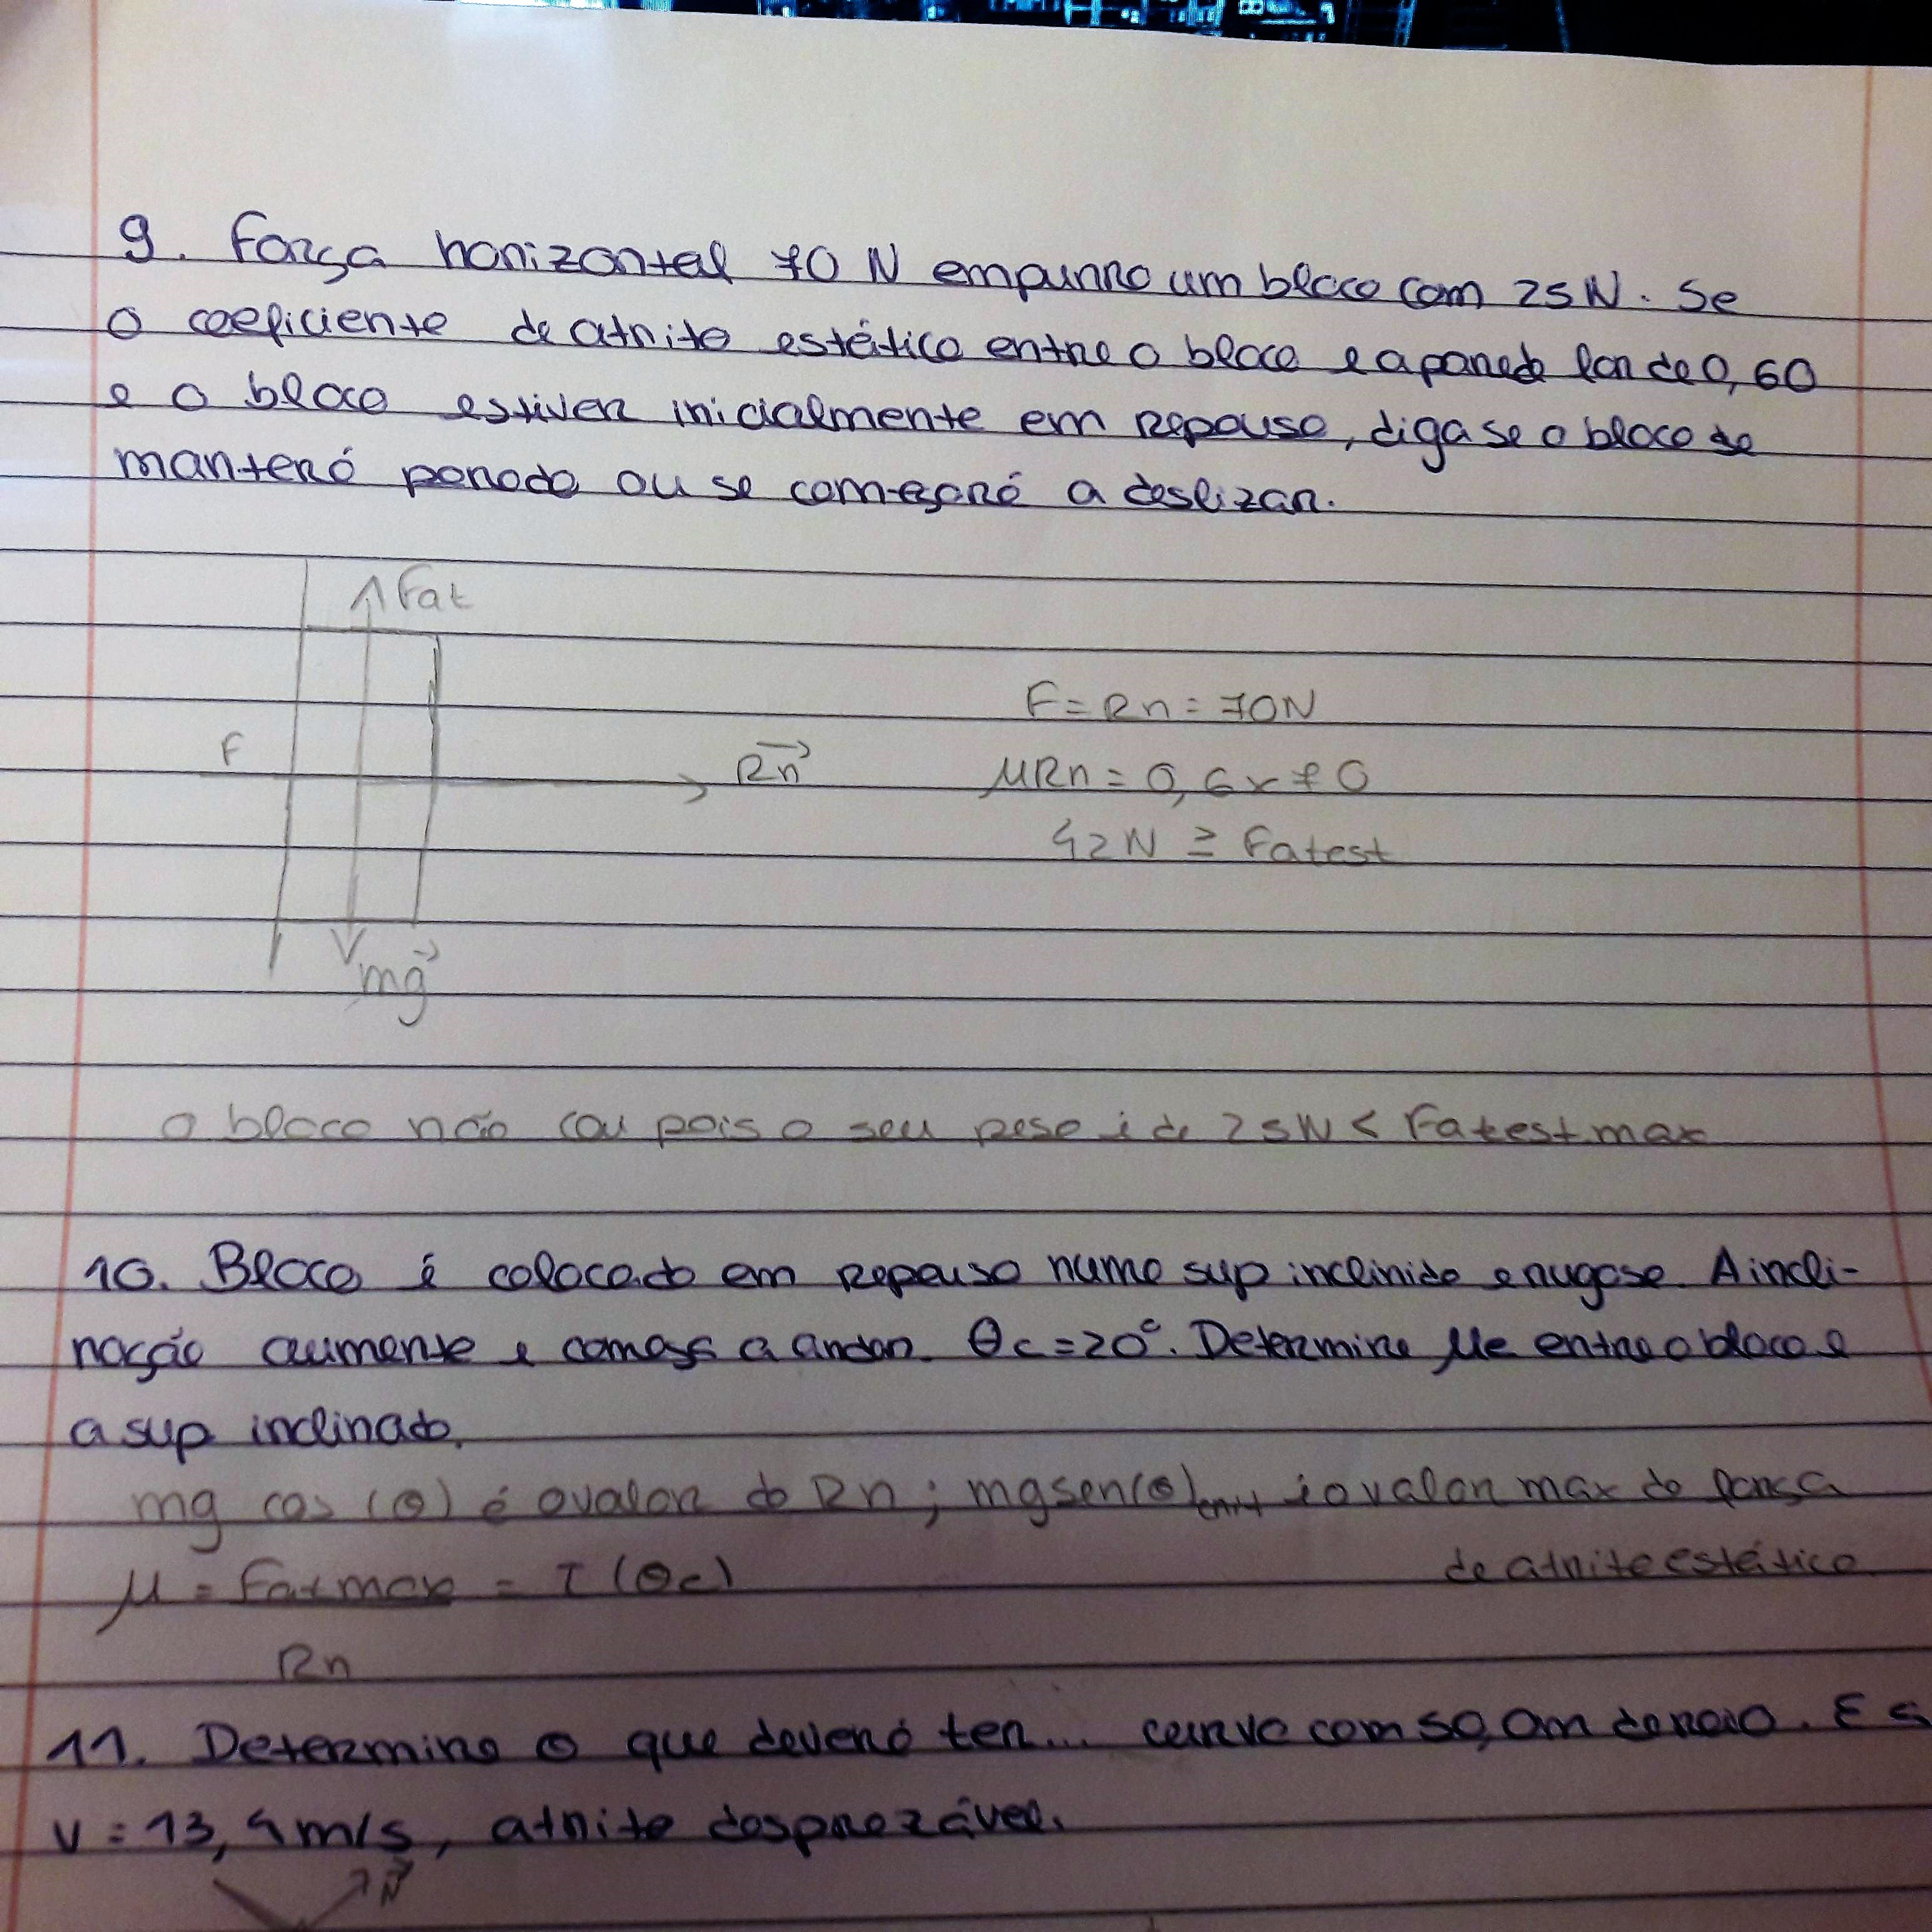 9. Força horizontal 70 N empurra um bloco com 25N. Se
o coeficiente de atrito estático entre o bloco e a parede for de 0,60
e o bloco estiver inicialmente em repouso, diga se o bloco se
manterá parado ou se começará a deslizar.
Fat
F = Rn = 70N
F
Rn
μRn = 0,6 x 70
42N ≥ Fatest
mg
o bloco não cai pois o seu peso é de 25N < Fatest max
10. Bloco é colocado em repouso numa sup inclinida e rugosa. A incli-
nação aumenta e começa a andar. θc = 20°. Determine μe entre o bloco e
a sup inclinado.
mg cos (θ) é o valor do Rn; mg sen(θ)crit é o valor max da força
de atrito estático
μ = Fatmax = T (θc)
Rn
11. Determine o que deverá ter... curva com 50,0m de raio. E s
v = 13,4 m/s, atrito desprezável.
N